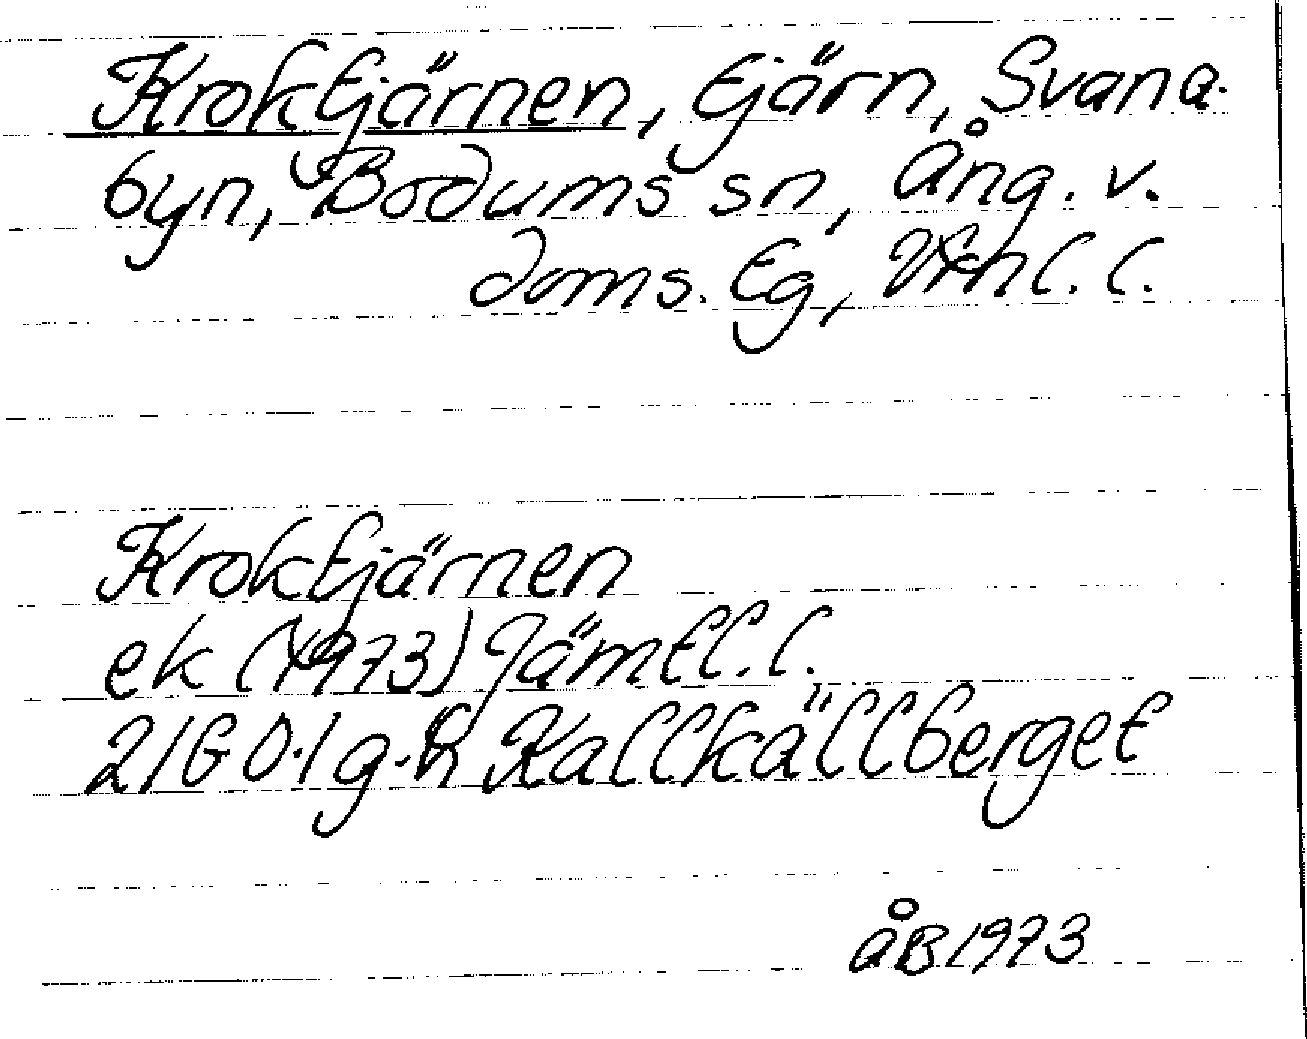 Kroktjärnen, tjärn, Svana-
byn, Bodums sn, Ång. v.
doms. tg, Vknl. l.
Kroktjärnen
ek (1973) Jämtl. l.
21G 0-1 g-h Kallkällberget
åB 1973